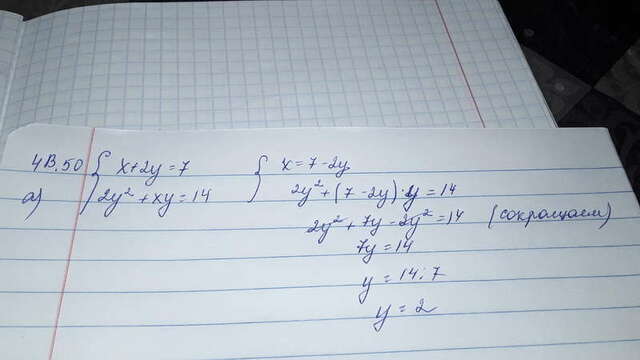 4В.50 x+2y=7 x=7-2y
а) 2y²+xy=14 2y²+(7-2y)·y=14
2y²+7y-2y²=14 (сокращаем)
7y=14
y=14:7
y=2